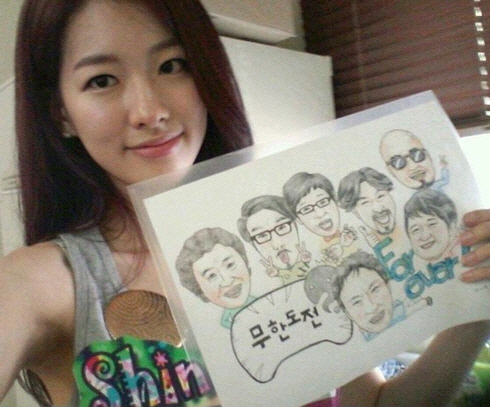 무한도전
For
ever
Shin